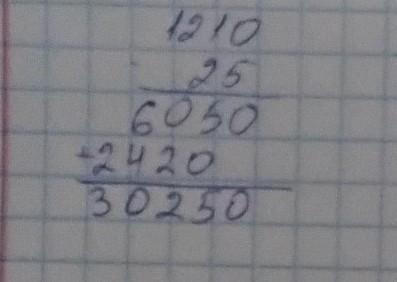 1210
25
6050
+2420
30250